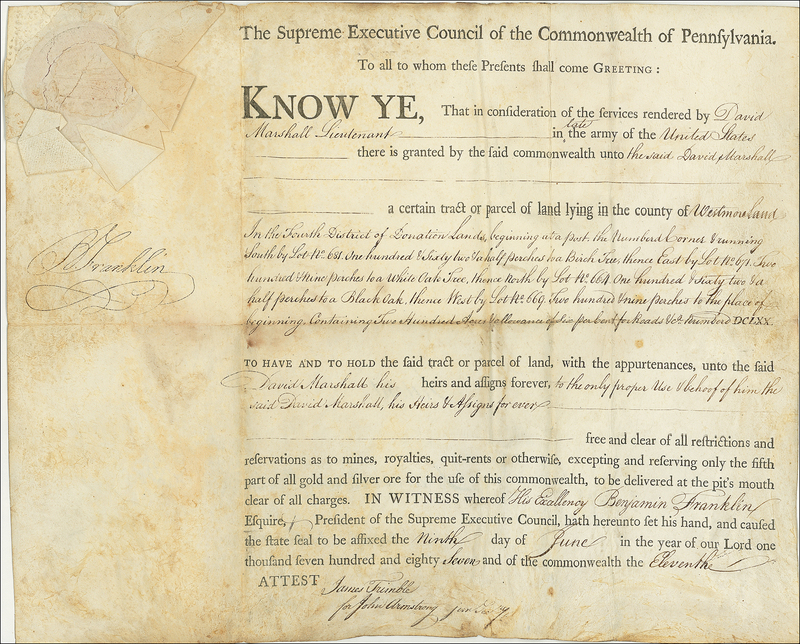 The Supreme Executive Council of the Commonwealth of Pennſylvania.
To all to whom theſe Preſents ſhall come GREETING:
KNOW YE, That in conſideration of the ſervices rendered by David
Marshall Lieutenant in the late army of the United States
there is granted by the ſaid commonwealth unto the said David Marshall
a certain tract or parcel of land lying in the county of Westmoreland
In the Fourth District of Donation Lands, beginning at a post the Numberd Corner & running
South by Lot No. 681. One hundred & Sixty two & a half perches to a Birch Tree, thence East by Lot No. 671. Two
hundred & Nine perches to a White Oak Tree, thence North by Lot No. 664. One hundred & Sixty two & a
half perches to a Black Oak, thence West by Lot No. 669. Two hundred & nine perches to the place of
beginning. Containing Two Hundred Acres & allowance of Six per Cent for Roads &ca. Numberd DCLXX.
TO HAVE AND TO HOLD the ſaid tract or parcel of land, with the appurtenances, unto the ſaid
David Marshall his heirs and aſſigns forever, to the only proper Use & behoof of him the
said David Marshall, his Heirs & Aſsigns for ever
free and clear of all reſtrictions and
reſervations as to mines, royalties, quit-rents or otherwiſe, excepting and reſerving only the fifth
part of all gold and ſilver ore for the uſe of this commonwealth, to be delivered at the pit's mouth
clear of all charges. IN WITNESS whereof His Excellency Benjamin Franklin
Eſquire, President of the Supreme Executive Council, hath hereunto ſet his hand, and cauſed
the ſtate ſeal to be affixed the Ninth day of June in the year of our Lord one
thouſand ſeven hundred and eighty Seven and of the commonwealth the Eleventh
ATTEST James Trimble
for John Armstrong junr. Secy.
B Franklin